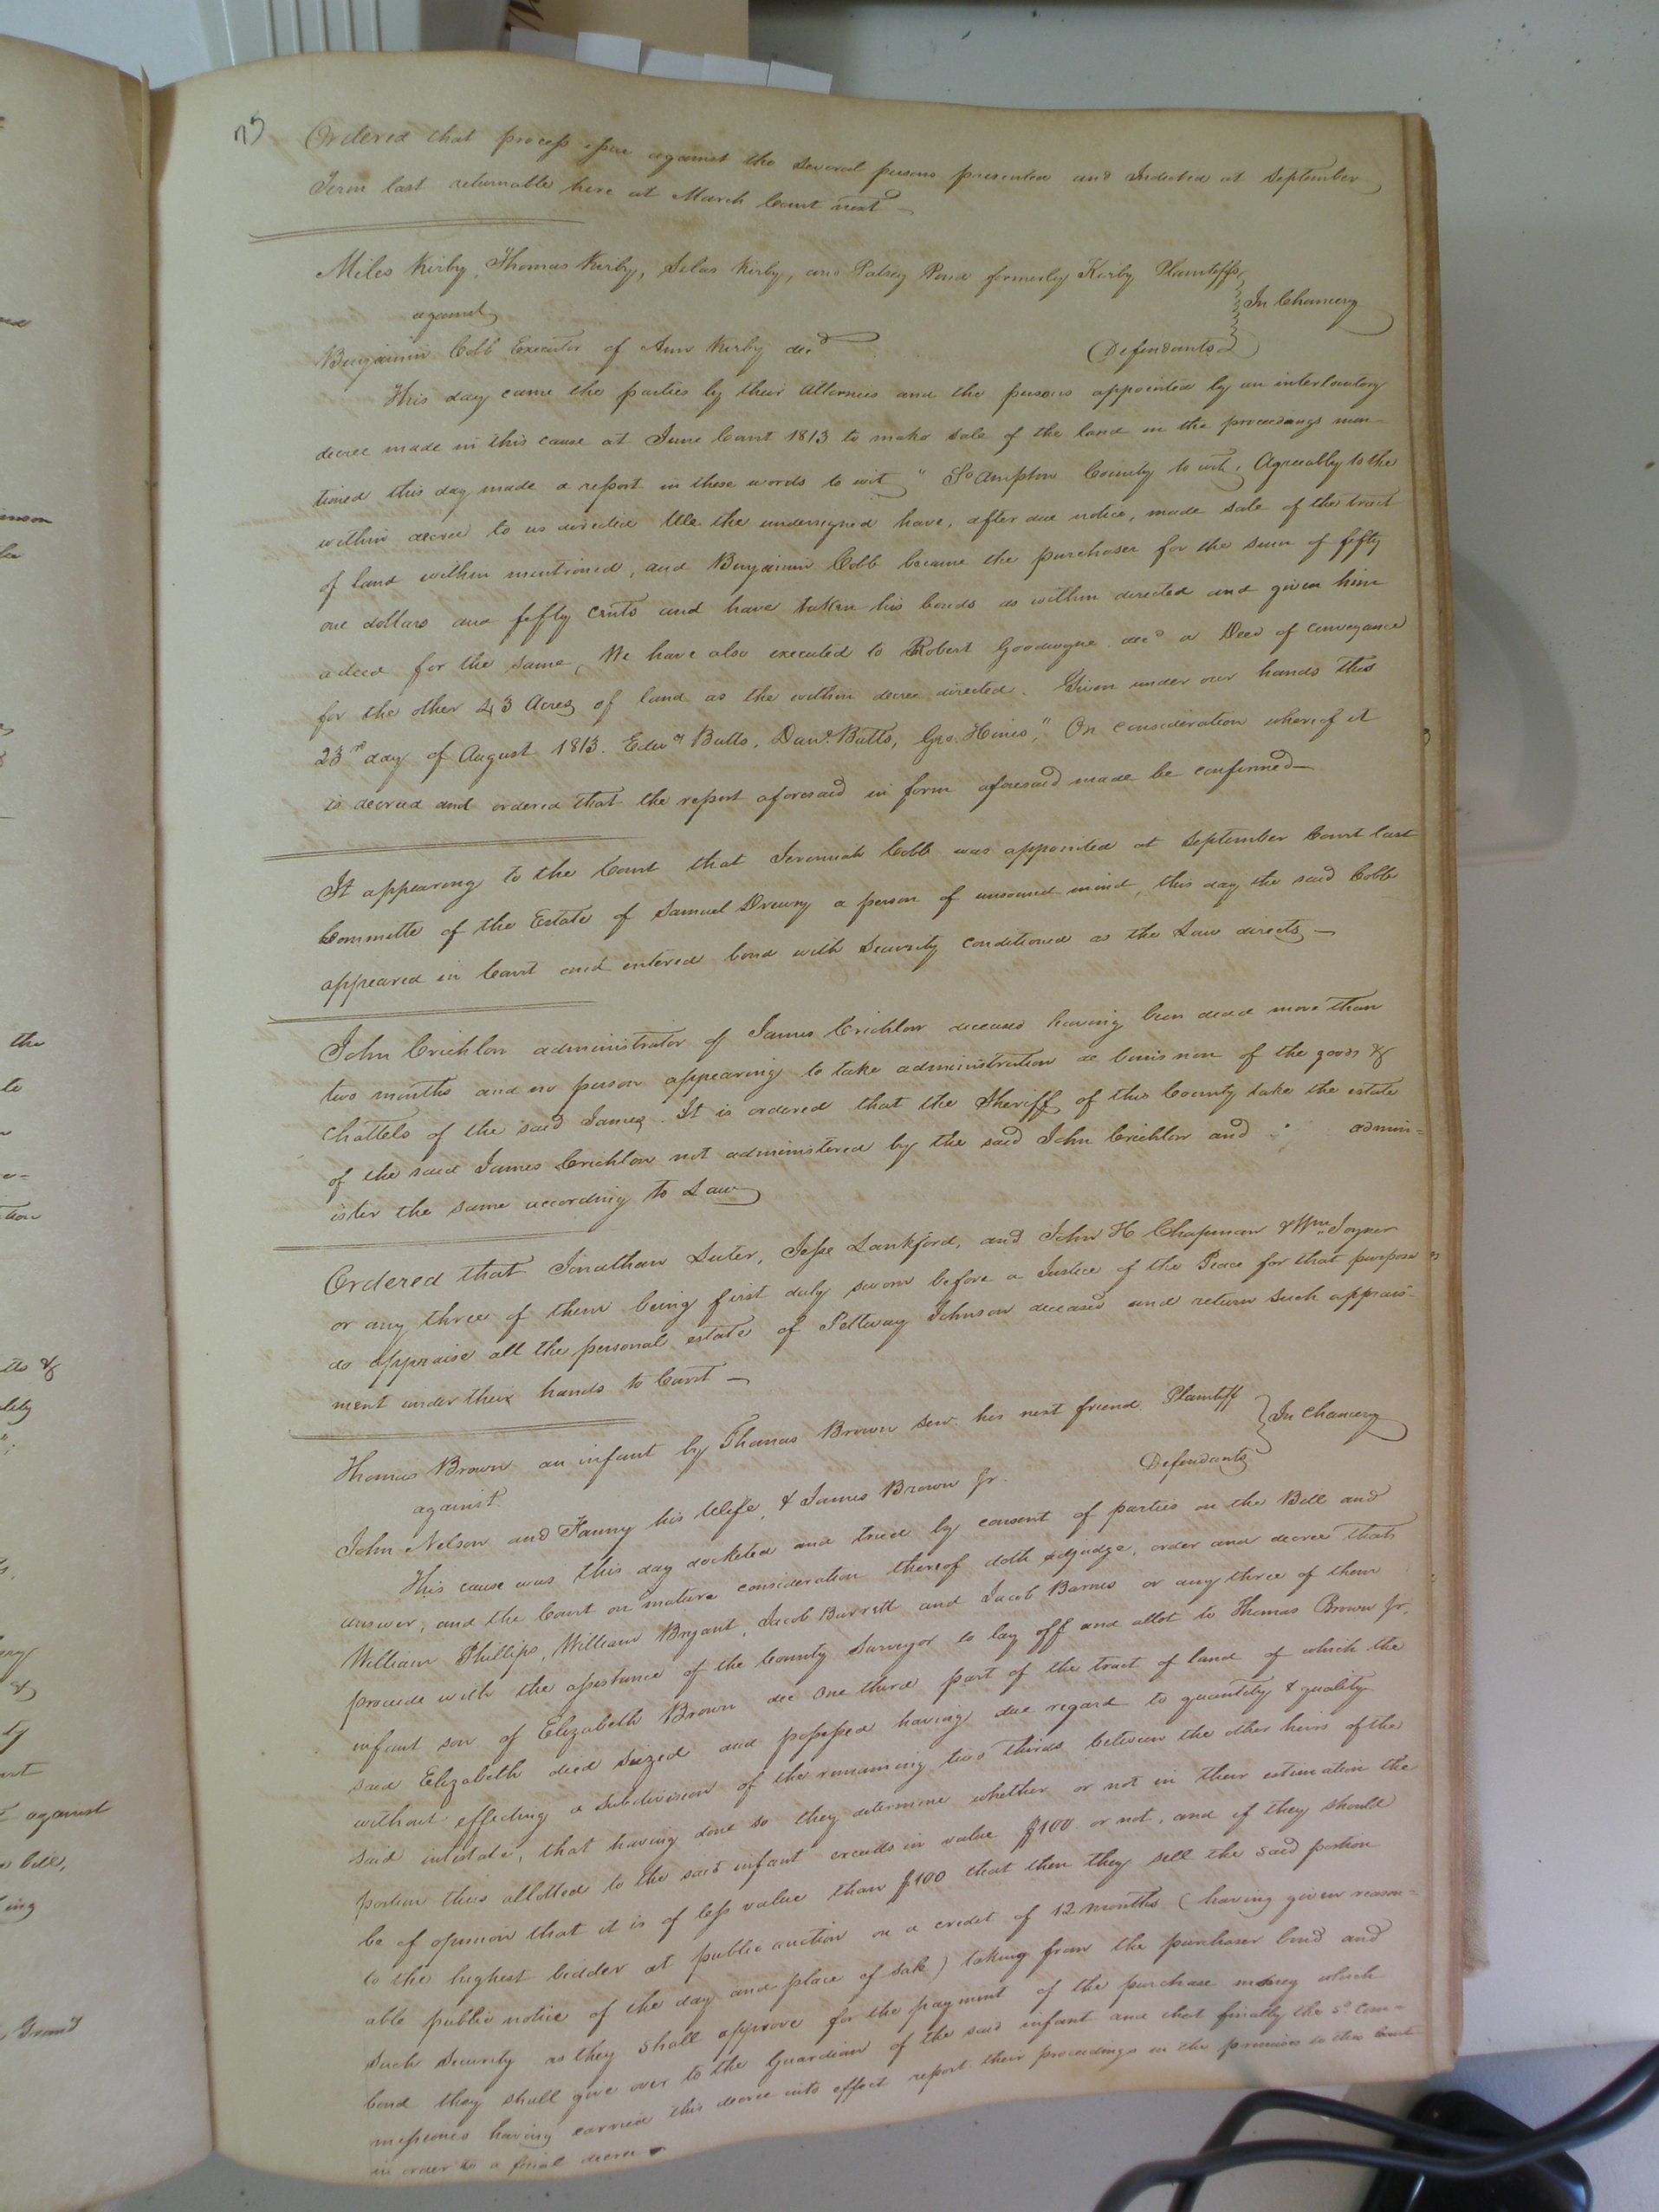 75
Ordered that process issue against the several persons presented and Indicted at September
Term last returnable here at March Court next
Miles Kirby, Thomas Kirby, Silas Kirby, and Patsey Pond formerly Kirby Plaintiffs
against
In Chancery
Benjamin Cobb Executor of Ann Kirby decd
Defendants
This day came the parties by their attornies and the persons appointed by an interlocutory
decree made in this cause at June Court 1813 to make sale of the land in the proceedings men-
tioned this day made a report in these words to wit, "So ampton County to wit, Agreeably to the
within decree to us directed We the undersigned have, after due notice, made sale of the tract
of land within mentioned, and Benjamin Cobb became the purchaser for the sum of fifty
one dollars and fifty cents and have taken his bonds as within directed and given him
a deed for the same, We have also executed to Robert Goodwyne decd a Deed of conveyance
for the other 43 Acres of land as the within decree directed. Given under our hands this
23rd day of August 1813. Edwd Butts, Danl Butts, Geo. Hines," On consideration whereof it
is decreed and ordered that the report aforesaid in form aforesaid made be confirmed—
It appearing to the Court that Jeremiah Cobb was appointed at September Court last
Committe of the Estate of Samuel Drewry a person of unsound mind, this day the said Cobb
appeared in Court and entered bond with Security conditioned as the Law directs —
John Crichlow administrator of James Crichlow deceased having been dead more than
two months and no person appearing to take administration de bonis non of the goods &
Chattels of the said James. It is ordered that the Sheriff of this County take the estate
of the said James Crichlow not administered by the said John Crichlow and admin=
ister the same according to Law
Ordered that Jonathan Luter, Jesse Lankford, and John H Chapman & Wm Joyner
or any three of them being first duly sworn before a Justice of the Peace for that purpose
do appraise all the personal estate of Pettway Johnson deceased and return such apprais-
ment under their hands to Court —
Thomas Brown an infant by Thomas Brown Senr. his next friend. Plaintiff
In Chancery
against
Defendants
John Nelson and Fanny his Wife, & James Brown Jr.
This cause was this day docketed and tried by consent of parties on the Bill and
answer, and the Court on mature consideration thereof doth adjudge, order and decree that
William Phillips, William Bryant, Jacob Barrett and Jacob Barnes or any three of them
proceede with the assistance of the County Surveyor to lay off and allot to Thomas Brown Jr.
infant son of Elizabeth Brown dec One third part of the tract of land of which the
said Elizabeth died seized and possessed having due regard to quantity & quality
without effecting a subdivision of the remaining two thirds between the other heirs of the
said intestate, that having done so they determine whether or not in their estimation the
portion thus allotted to the said infant exceeds in value $100 or not, and if they should
be of opinion that it is of less value than $100 that then they sell the said portion
to the highest bidder at public auction on a credit of 12 months (having given reason=
able public notice of the day and place of sale) taking from the purchaser bond and
such security as they shall approve for the payment of the purchase money which
bond they shall give over to the Guardian of the said infant and that finally the sd. Com-
missioners having carried this decree into effect report their proceedings in the premises to this Court
in order to a final decree